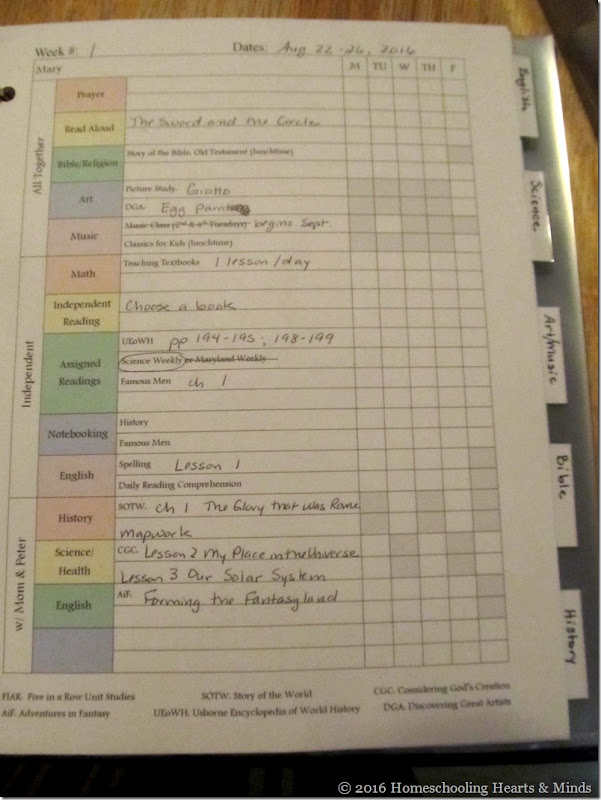 Week #: 1 Dates: Aug 22-26, 2016
Mary M TU W TH F
All Together
Prayer
Read Aloud The Sword and the Circle
Bible/Religion Story of the Bible: Old Testament (lunchtime)
Art Picture Study: Giotto
DGA: Egg Paint
Music Music Class (2nd & 4th Tuesdays) begins Sept.
Classics for Kids (lunchtime)
Independent
Math Teaching Textbooks 1 lesson/day
Independent Reading Choose a book
Assigned Readings UEoWH pp 194-195; 198-199
Science Weekly or Maryland Weekly
Famous Men ch 1
Notebooking History
Famous Men
English Spelling Lesson 1
Daily Reading Comprehension
w/ Mom & Peter
History SOTW: ch 1 The Glory that was Rome
mapwork
Science/Health CGC: Lesson 2 My Place in the Universe
Lesson 3 Our Solar System
English AiF: Forming the Fantasyland
FIAR: Five in a Row Unit Studies SOTW: Story of the World CGC: Considering God's Creation
AiF: Adventures in Fantasy UEoWH: Usborne Encyclopedia of World History DGA: Discovering Great Artists
English
Science
Art/Music
Bible
History
© 2016 Homeschooling Hearts & Minds